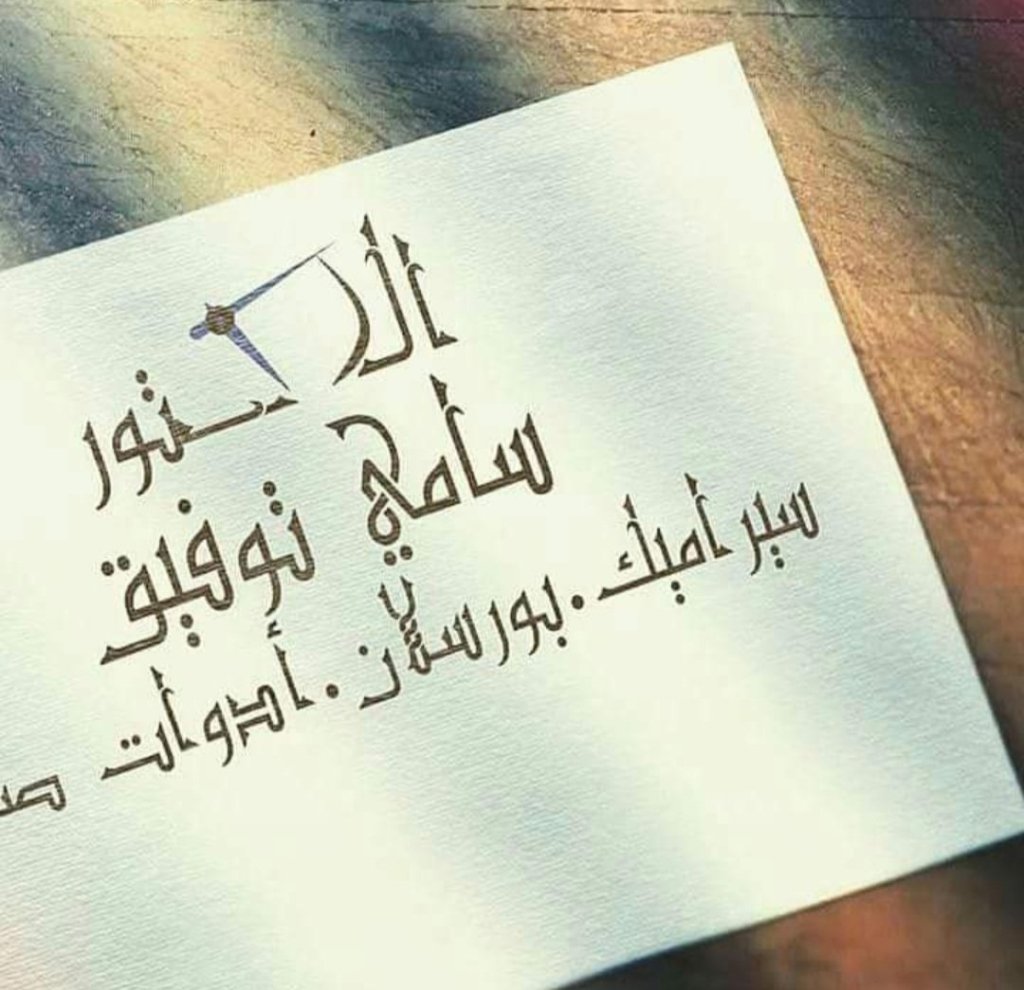 الدكتور
سامي توفيق
سيراميك.بورسلان.أدوات